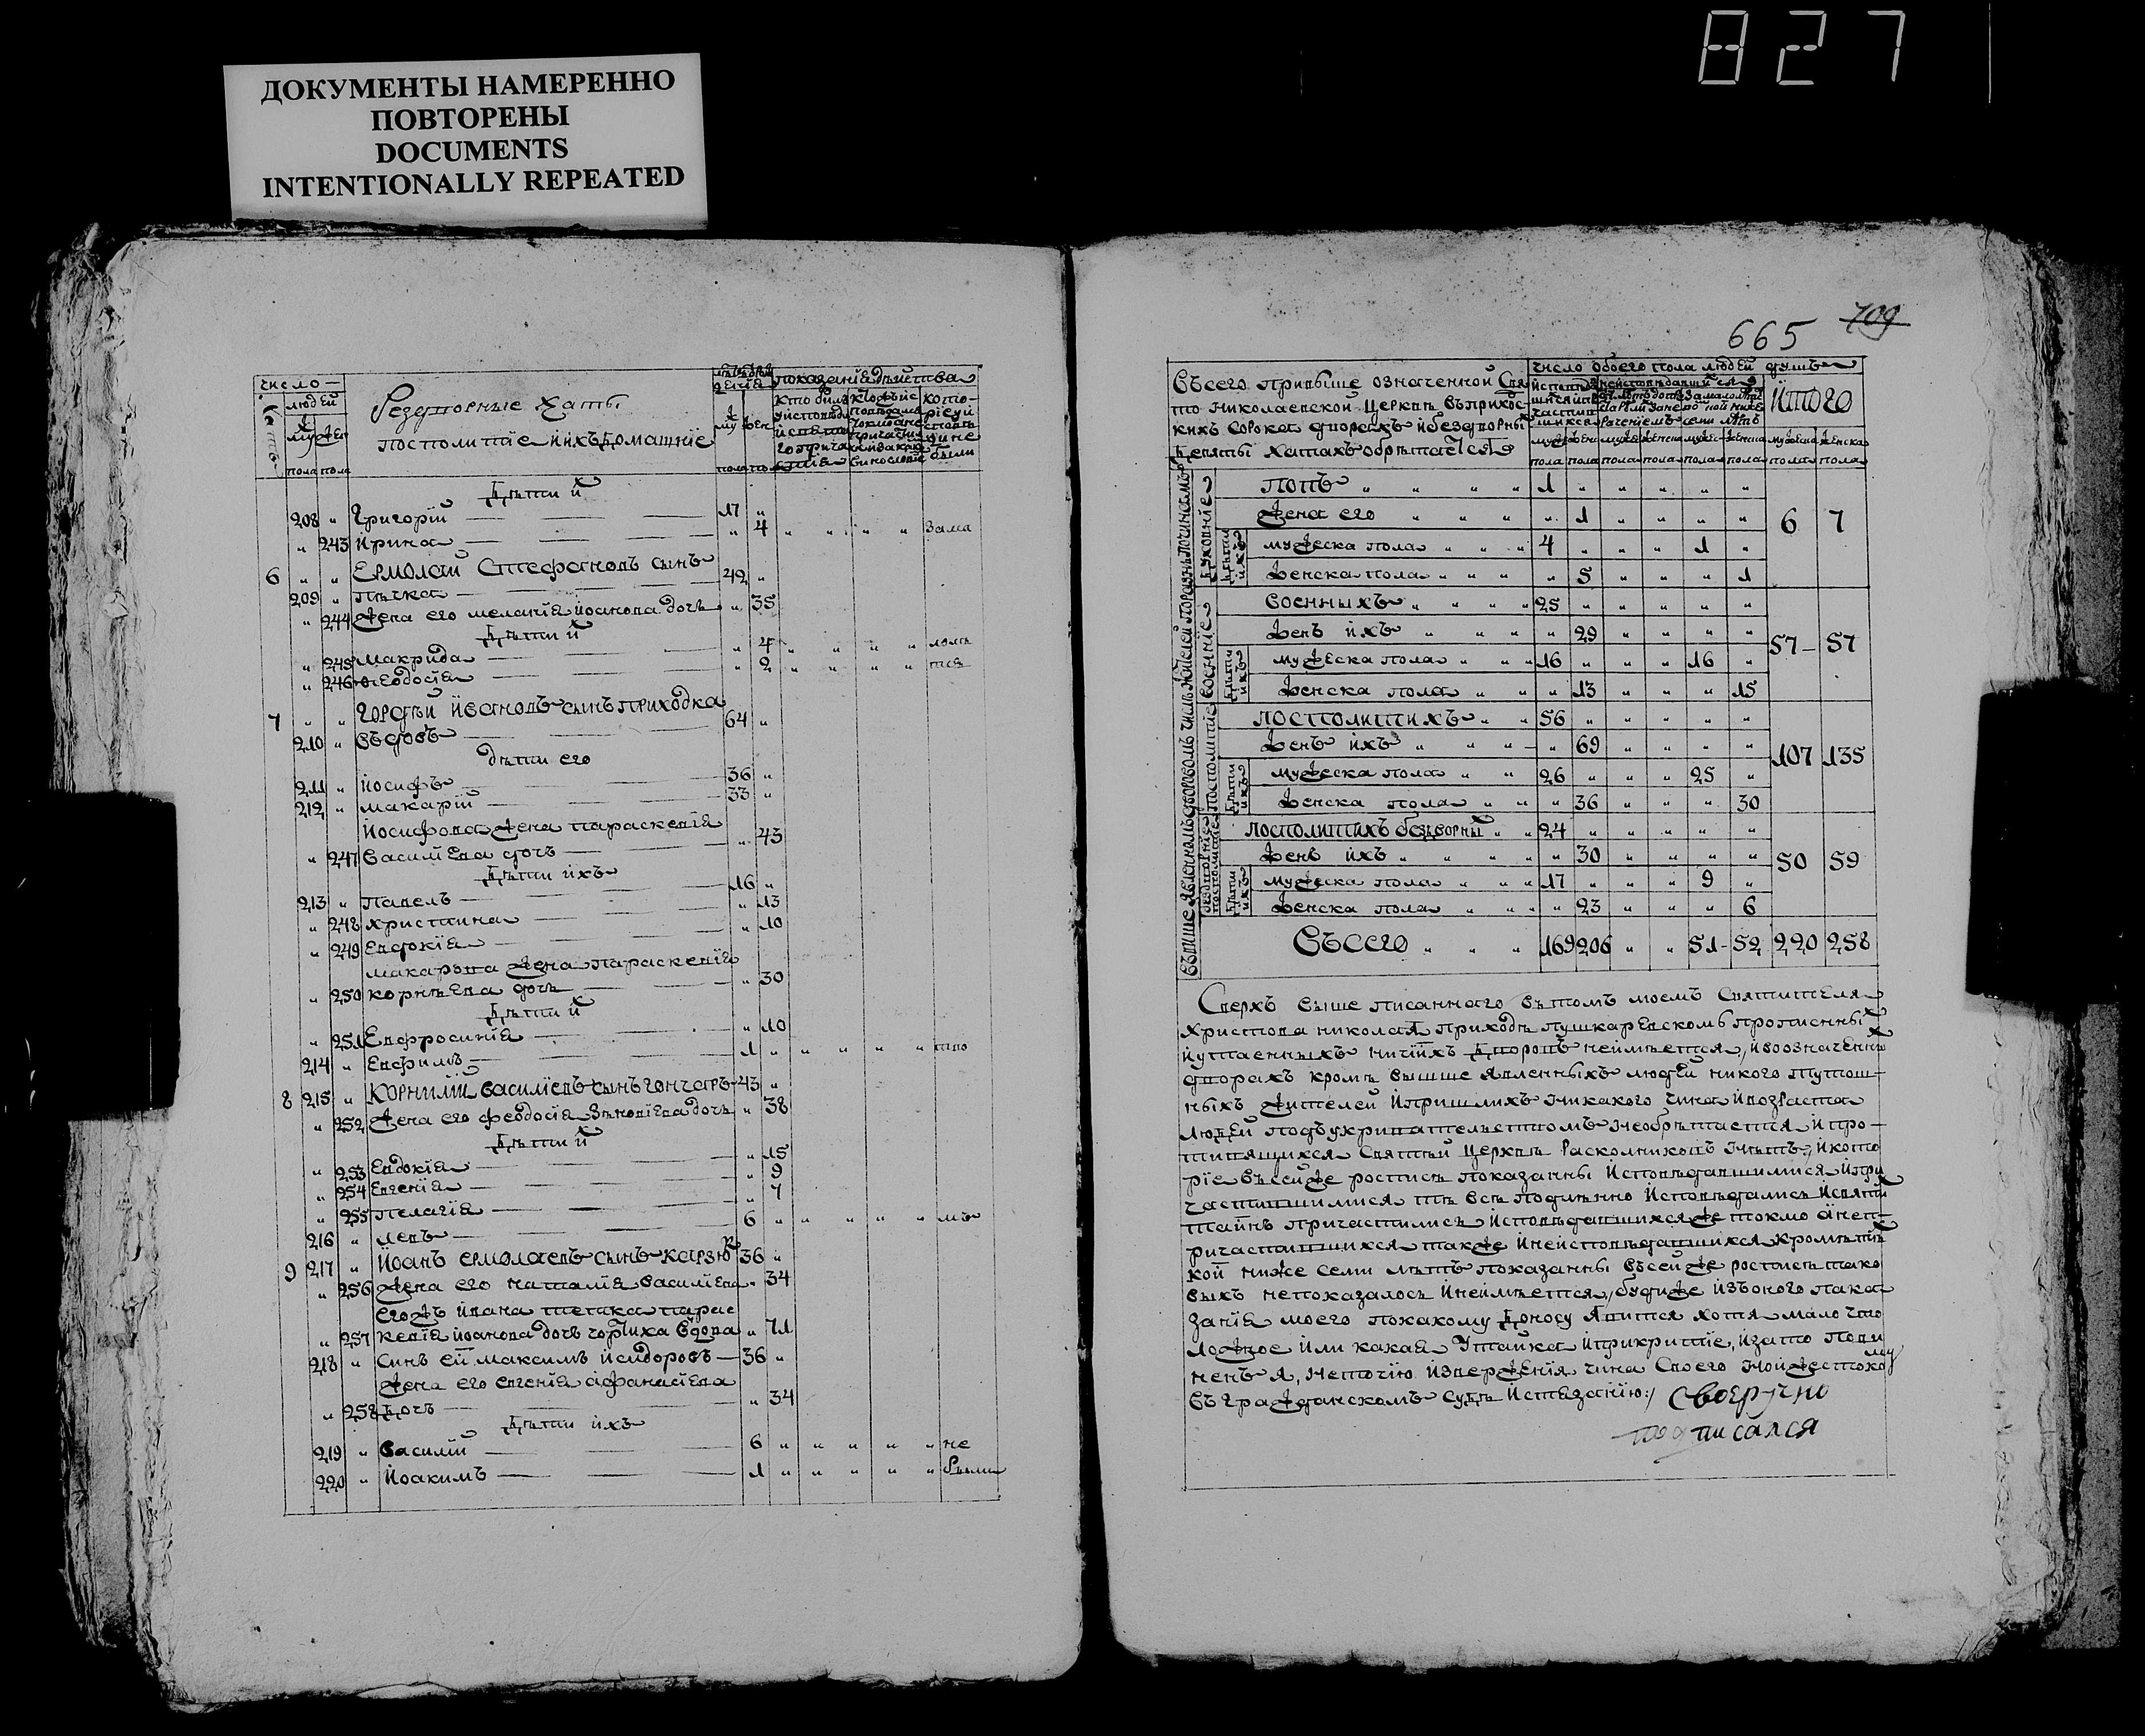 827
ДОКУМЕНТЫ НАМЕРЕННО
ПОВТОРЕНЫ
DOCUMENTS
INTENTIONALLY REPEATED
число
людей
муж жен
пола пола
хаты
посполитіе и ихъ домашніе
показанія дѣйства
Дѣти их
208 " Григорій 17 "
" 243 Ирина " 4 " " " " Зама
6 " " Ермолай Стефановъ сынъ
209 " 42 "
" 244 Жена его Меланія Иоанова дочь " 35
Дѣти их
" 245 Макрида " 4 " " " " лолѣ
" 246 Феодосія " 2 " " " " тст
7 " " Гордѣй Ивановъ сынъ Приходка
210 " Вдовъ 64 "
дѣти его
211 " Иосифъ 36 "
212 " Макарій 33 "
Иосифова жена Параскевія
" 247 Василіева дочь " 43
Дѣти ихъ
213 " Павелъ 16 "
" 248 Христина " 13
" 249 Евдокія " 10
Макарова жена Параскевія
" 250 Корнѣева дочь " 30
Дѣти их
" 251 Евфросинія " 10
214 " Евфимъ 1 " " " " " тво
8 215 " Корнилій Василіевъ сынъ Гончаръ 43 "
" 252 Жена его Феодосія Зѣновіева дочь " 38
Дѣти их
" 253 Евдокія " 15
" 254 Евгенія " 9
" 255 Пелагія " 7
216 " Левъ 6 " " " " " мъ
9 217 " Иоанъ Ермолаевъ сынъ 36 "
" 256 Жена его Наталія Василіева " 34
Егожъ Ивана тетка Парас
" 257 кевія Иоанова дочь вдова " 71
218 " Синъ ей Максимъ Исидоровъ 36 "
Жена его Евгенія Афанасіева
" 258 Дочь " 34
Дѣти ихъ
219 " Василій 6 " " " " " не
220 " Иоакимъ 1 " " " " " были
665 709
Въсего привыше означенной Свя
то Николаевской Церквѣ въ приходс
кихъ сорока дворахъ и бездворны
девяты хатахъ обрѣтаеться
число обоего пола людей душъ
итого
Попъ " " " " 1 " " " " "
Жена его " " " " " 1 " " " "
6 7
Дѣти ихъ
мужеска пола " " " 4 " " " 1 "
женска пола " " " " 5 " " " 1
Военныхъ " " " " 25 " " " " "
Женъ ихъ " " " " 29 " " " "
57 57
Дѣти ихъ
мужеска пола " " " 16 " " " 16 "
женска пола " " " 13 " " " 15
Посполитихъ " " 56 " " " " "
Женъ ихъ " " " " 69 " " " "
107 135
Дѣти ихъ
мужеска пола " " 26 " " " 25 "
женска пола " " " 36 " " " 30
Посполитихъ бездворны " " 24 " " " " "
Женъ ихъ " " " " " 30 " " " "
50 59
Дѣти ихъ
мужеска пола " " " 17 " " " 9 "
женска пола " " " " 23 " " " 6
Въсего " " " " 169 206 " " 51 52 220 258
Сверхъ выше писанного въ томъ моемъ Святителя
Христова Николая приходѣ Пушкаревскомъ прописных
и утаенныхъ ничіихъ дворовъ неимѣется, и во означенных
дворахъ кромѣ вышше явленныхъ людей никого тутош
ныхъ жителей и пришлихъ никакого чина и возраста
людей подъ укривателствомъ необрѣтается и про
тивящихся Святѣй Церквѣ расколниковъ нѣтъ, и кото
ріе въ сей же росписѣ показанны исповѣдавшимися и при
частившимися тѣ всѣ подлѣнно исповѣдались и святих
тайнъ причастились исповѣдавшихся же токмо а неп
ричастившихся такжe и неисповѣдавшихся кромѣ тѣх
кои ниже семи лѣтъ показанны въ сей же росписѣ тако
выхъ непоказалось и неимѣется, буди же изъ оного пока
занія моего покакому доносу явится хотя мало что
ложное или какая утайка и прикритіе, и за то пови
ненъ я, неточію изверженія чина своего но и жестоко
му въ гражданскомъ судѣ истязанію:/ своеручно
подписался